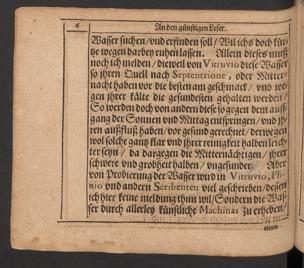 6 An den günstigen Leser.
Wasser suchen/ vnd erfinden soll/ Wil ichs doch kür-
tze wegen darbey ruhen lassen. Allein dieses muß
noch ich melden/ dieweil von Vitruvio diese Wasser
so ihren Quell nach Septentrione, oder Mitter-
nacht haben vor die besten am geschmack/ vnd we-
gen jhrer kälte die gesundesten gehalten werden/
So werden doch von andern diese so gegen dem auff-
gang der Sonnen vnd Mittag entspringen/ vnd jh-
ren außfluß haben/ vor gesund gerechnet/ derwegen
weil solche gantz klar vnd jhrer reinigkeit halben leich-
ter seyn/ da dargegen die Mitternächtigen/ jhrer
schwere vnd grobheit halben/ vngesunder. Aber
von Probierung der Wasser wird in Vitruvio, Pli-
nio vnd andern Scribenten viel geschrieben/ dessen
ich hier keine meldung thun wil/ Sondern die Was-
ser durch allerley künstliche Machinas zu erheben/
einem